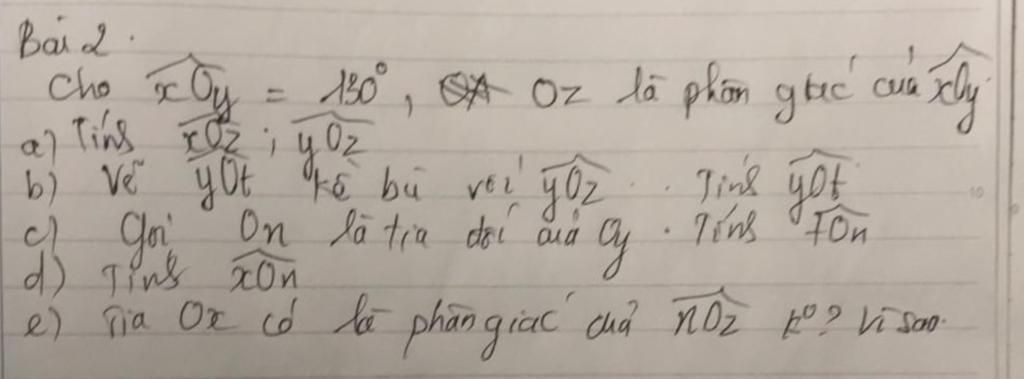 Bài 2.
Cho xOy = 130°, Oz là phân giác của xOy
a) Tính xOz ; yOz
b) Vẽ yOt kề bù với yOz . Tính yOt
c) Gọi On là tia đối của Oy . Tính tOn
d) Tính xOn
e) Tia Ox có là phân giác của nOz k°? Vì sao.